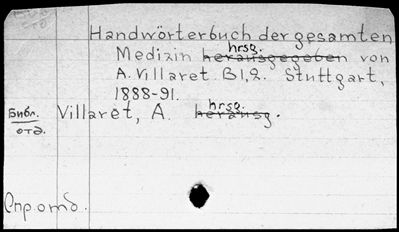 Handwörterbuch der gesamten
Medizin hrsg. herausgegeben von
A. Villaret. B1,2. Stuttgart,
1888-91.
Библ. Villaret, A. hrsg. herausg.
отд.
Спр. отд.